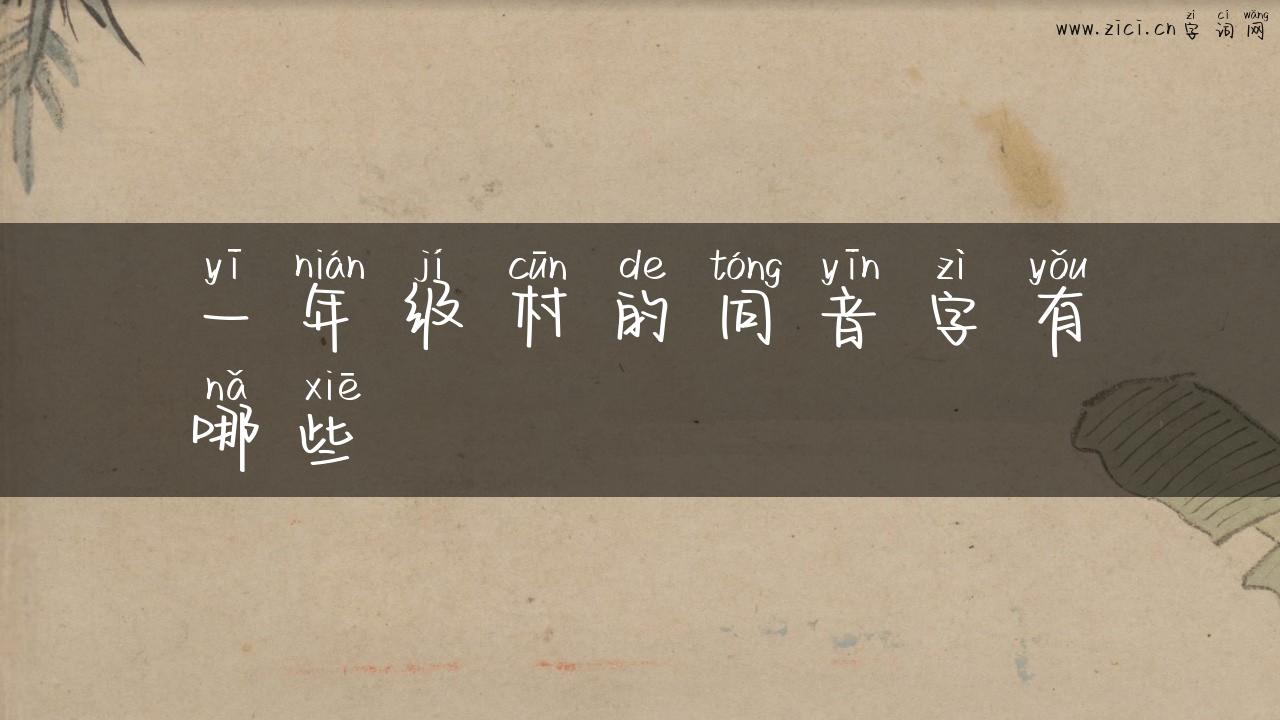 zì cí wǎng
www.zici.cn 字词网
yī nián jí cūn de tóng yīn zì yǒu
一年级村的同音字有
nǎ xiē
哪些